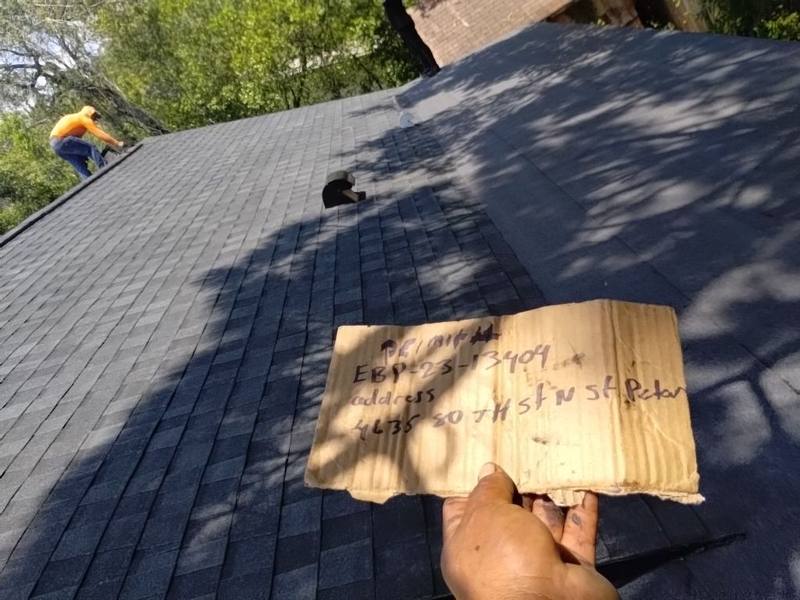 PERMIT #
EBP-23-13409
address
4635 80 TH St N St. Peter